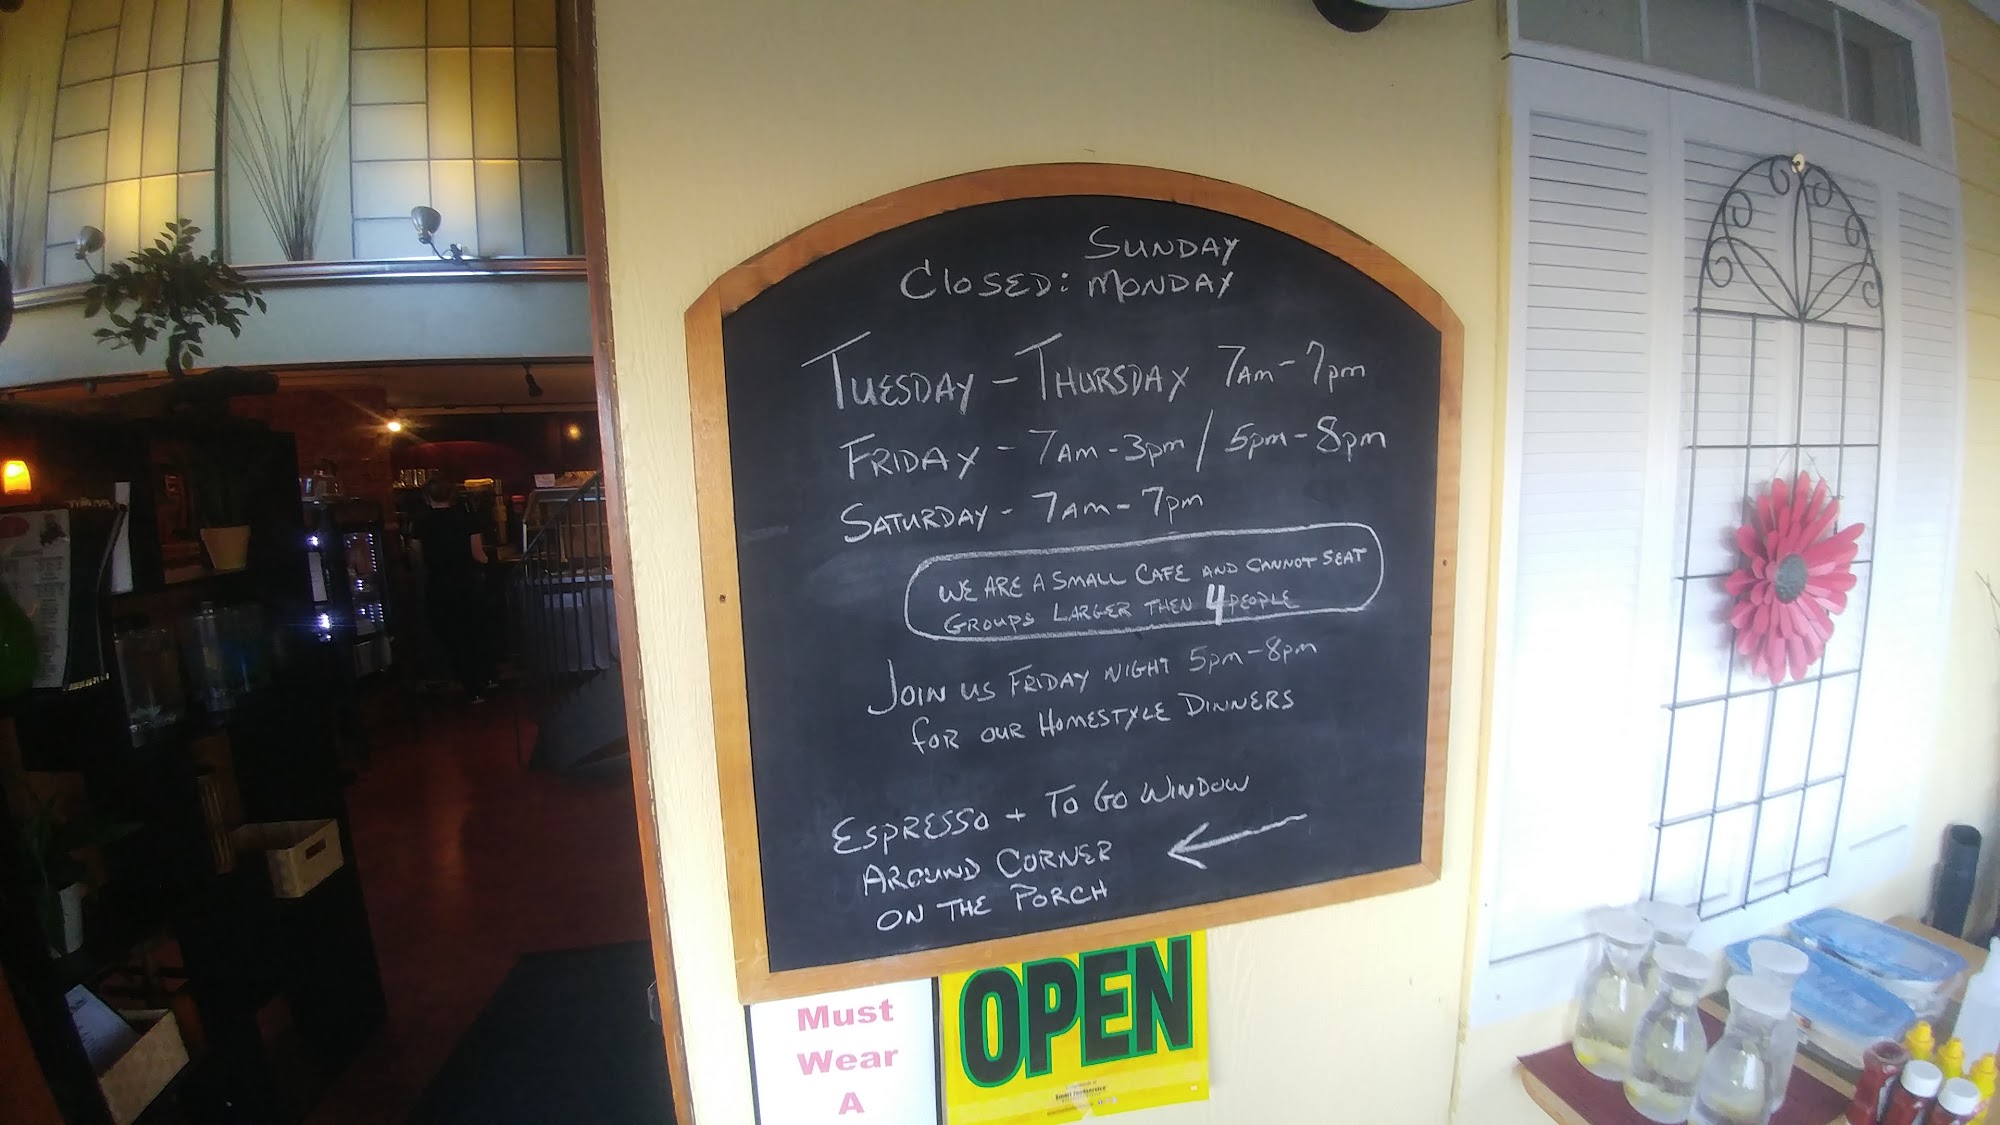 SUNDAY
CLOSED: MONDAY
TUESDAY - THURSDAY 7AM - 7pm
FRIDAY - 7AM - 3pm / 5pm - 8pm
SATURDAY - 7AM - 7pm
WE ARE A SMALL CAFE AND CANNOT SEAT
GROUPS LARGER THEN 4 PEOPLE
JOIN US FRIDAY NIGHT 5pm - 8pm
FOR OUR HOMESTYLE DINNERS
ESPRESSO + TO GO WINDOW
AROUND CORNER
ON THE PORCH
Must
Wear
A
OPEN